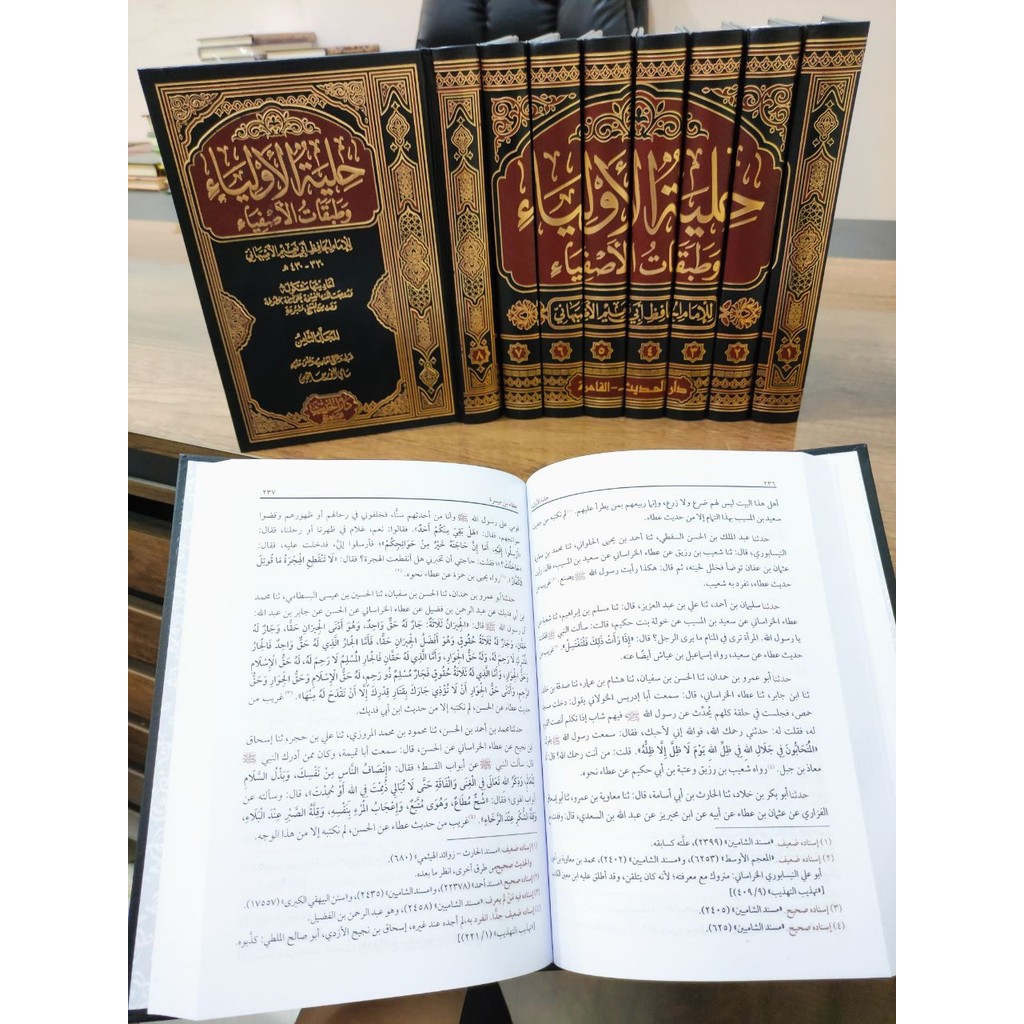 حلية الأولياء
وطبقات الأصفياء
للإمام الحافظ أبي نعيم الأصبهاني
٣٣٦ - ٤٣٠ هـ
المجلد الثامن
حلية الأولياء
وطبقات الأصفياء
للإمام الحافظ أبي نعيم الأصبهاني
١
٢
٣
٤
٥
٦
٧
٨
دار الحديث - القاهرة
٢٣٦
أهل هذا البيت ليس لهم ضرع ولا زرع، وإنما ربيعهم بمن يطرأ عليهم. لم نكتبه من حديث
سعيد بن المسيب بهذا التمام إلا من حديث عطاء.
حدثنا عبد الملك بن الحسن السقطي، ثنا أحمد بن يحيى الحلواني، ثنا محمد بن معاوية
النيسابوري، قال: ثنا شعيب بن رزيق عن عطاء الخراساني عن سعيد بن المسيب، قال: رأيت
عثمان بن عفان توضأ فخلل لحيته، ثم قال: هكذا رأيت رسول الله ﷺ يصنع. غريب من
حديث عطاء، تفرد به شعيب.
حدثنا سليمان بن أحمد، ثنا علي بن عبد العزيز، قال: ثنا مسلم بن إبراهيم، ثنا
عطاء الخراساني عن سعيد بن المسيب عن خولة بنت حكيم، قالت: سألت النبي ﷺ
يا رسول الله. المرأة ترى في المنام ما يرى الرجل؟ قال: «إِذَا رَأَتْ ذَلِكَ فَلْتَغْتَسِلْ». غريب
حديث عطاء عن سعيد، رواه إسماعيل بن عياش أيضًا عنه.
حدثنا أبو عمرو بن حمدان، ثنا الحسن بن سفيان، ثنا هشام بن عمار، ثنا صدقة بن خالد
ثنا ابن جابر، ثنا عطاء الخراساني، قال: سمعت أبا إدريس الخولاني يقول: دخلت مسجد
حمص، فجلست في حلقة كلهم يُحدِّث عن رسول الله ﷺ فيهم شاب إذا تكلم أنصت القوم
له، فقلت له: حدثني رحمك الله، فوالله إني لأحبك، فقال: سمعت رسول الله ﷺ يقول:
«الْمُتَحَابُّونَ فِي جَلَالِ الله فِي ظِلِّ الله يَوْمَ لَا ظِلَّ إِلَّا ظِلُّهُ». قلت: من أنت رحمك الله؟ قال: أنا
معاذ بن جبل. (٤) رواه شعيب بن رزيق وعتبة بن أبي حكيم عن عطاء نحوه.
حدثنا أبو بكر بن خلاد، ثنا الحارث بن أبي أسامة، قال: ثنا معاوية بن عمرو، ثنا أبو إسحاق
الفزاري عن عثمان بن عطاء عن أبيه عن ابن محيريز عن عبد الله بن السعدي، قال: وفدت
(١) إسناده ضعيف. «مسند الشاميين» (٢٣٩٩)، علَّته كسابقه.
(٢) إسناده ضعيف. «المعجم الأوسط» (٦٢٥٣)، و«مسند الشاميين» (٢٤٠٢)، محمد بن معاوية بن أعين
أبو علي النيسابوري الخراساني: متروك مع معرفته؛ لأنه كان يتلقن، وقد أطلق عليه ابن معين الكذب
[«تهذيب التهذيب» (٤٠٩/٩)]
(٣) إسناده صحيح. «مسند الشاميين» (٢٤٠٥).
(٤) إسناده صحيح. «مسند الشاميين» (٦٢٥).
عطاء بن ميسرة
٢٣٧
قومي على رسول الله ﷺ وأنا من أحدثهم سنًّا، فخلفوني في رحالهم أو ظهورهم وقضوا
حوائجهم، فقال: «هَلْ بَقِيَ مِنْكُمْ أَحَدٌ». فقالوا: نعم، غلام في ظهرنا أو رحلنا، فقال:
«أَرْسِلُوا إِلَيْهِ، أَمَا إِنَّ حَاجَتَهُ خَيْرٌ مِنْ حَوَائِجِكُمْ»؛ فأرسلوا إليَّ، فدخلت عليه، فقال:
«حَاجَتُكَ؟» فقلت: حاجتي أن تخبرني هل انقطعت الهجرة؟ فقال: «لَا تَنْقَطِعِ الْهِجْرَةُ مَا قُوتِلَ
الْكُفَّارُ». رواه يحيى بن حمزة عن عطاء نحوه.
حدثنا أبو عمرو بن حمدان، ثنا الحسن بن سفيان، ثنا الحسين بن عيسى البسطامي، ثنا محمد
بن أبي فديك عن عبد الرحمن بن فضيل عن عطاء الخراساني عن الحسن عن جابر بن عبد الله:
أن رسول الله ﷺ قال: «الْجِيرَانُ ثَلَاثَةٌ: جَارٌ لَهُ حَقٌّ وَاحِدٌ، وَهُوَ أَدْنَى الْجِيرَانِ حَقًّا، وَجَارٌ لَهُ
حَقَّانِ، وَجَارٌ لَهُ ثَلَاثَةُ حُقُوقٍ وَهُوَ أَفْضَلُ الْجِيرَانِ حَقًّا، فَأَمَّا الْجَارُ الَّذِي لَهُ حَقٌّ وَاحِدٌ فَالْجَارُ
الْمُشْرِكُ لَا رَحِمَ لَهُ، وَلَهُ حَقُّ الْجِوَارِ، وَأَمَّا الَّذِي لَهُ حَقَّانِ فَالْجَارُ الْمُسْلِمُ لَا رَحِمَ لَهُ، لَهُ حَقُّ الْإِسْلَامِ
وَحَقُّ الْجِوَارِ، وَأَمَّا الَّذِي لَهُ ثَلَاثَةُ حُقُوقٍ فَجَارٌ مُسْلِمٌ ذُو رَحِمٍ، لَهُ حَقُّ الْإِسْلَامِ وَحَقُّ الْجِوَارِ وَحَقُّ
الرَّحِمِ، وَأَدْنَى حَقِّ الْجِوَارِ أَنْ لَا تُؤْذِيَ جَارَكَ بِقُتَارِ قِدْرِكَ إِلَّا أَنْ تَقْدَحَ لَهُ مِنْهَا». (٣) غريب من
حديث عطاء عن الحسن، لم نكتبه إلا من حديث ابن أبي فديك.
حدثنا محمد بن أحمد بن الحسن، ثنا محمود بن محمد المروزي، ثنا علي بن حجر، ثنا إسحاق
بن نجيح عن عطاء الخراساني عن الحسن، قال: سمعت أبا تميمة، وكان ممن أدرك النبي ﷺ
قال سألت النبي ﷺ عن أبواب القسط؛ فقال: «إِنْصَافُ النَّاسِ مِنْ نَفْسِكَ، وَبَذْلُ السَّلَامِ
لِلْعَالَمِ، وَذِكْرُ الله تَعَالَى فِي الْغِنَى وَالْفَاقَةِ حَتَّى لَا تُبَالِيَ ذُمِمْتَ فِي الله أَوْ حُمِدْتَ»، قال: وسألته عن
أبواب الهوى؟ فقال: «شُحٌّ مُطَاعٌ، وَهَوًى مُتَّبَعٌ، وَإِعْجَابُ الْمَرْءِ بِنَفْسِهِ، وَقِلَّةُ الصَّبْرِ عِنْدَ الْبَلَاءِ،
وَقِلَّةُ الشُّكْرِ عِنْدَ الرَّخَاءِ». غريب من حديث عطاء عن الحسن، لم نكتبه إلا من هذا الوجه.
(١) إسناده ضعيف. «مسند الحارث - زوائد الهيثمي» (٦٨٠).
والحديث صحيح من طرق أخرى، انظر ما بعده.
(٢) إسناده صحيح. «مسند أحمد» (٢٢٣٧٨)، و«مسند الشاميين» (٢٤٣٥)، و«سنن البيهقي الكبرى» (١٧٥٥٧).
(٣) إسناده فيه مَن لم يُعرف. «مسند الشاميين» (٢٤٥٨)، وهو عبد الرحمن بن الفضيل.
(٤) إسناده ضعيف جدًّا. انفرد به، لم أجده عند غيره، إسحاق بن نجيح الأزدي، أبو صالح الملطي: كذَّبوه.
[«تهذيب التهذيب» (٢٢١/١)]